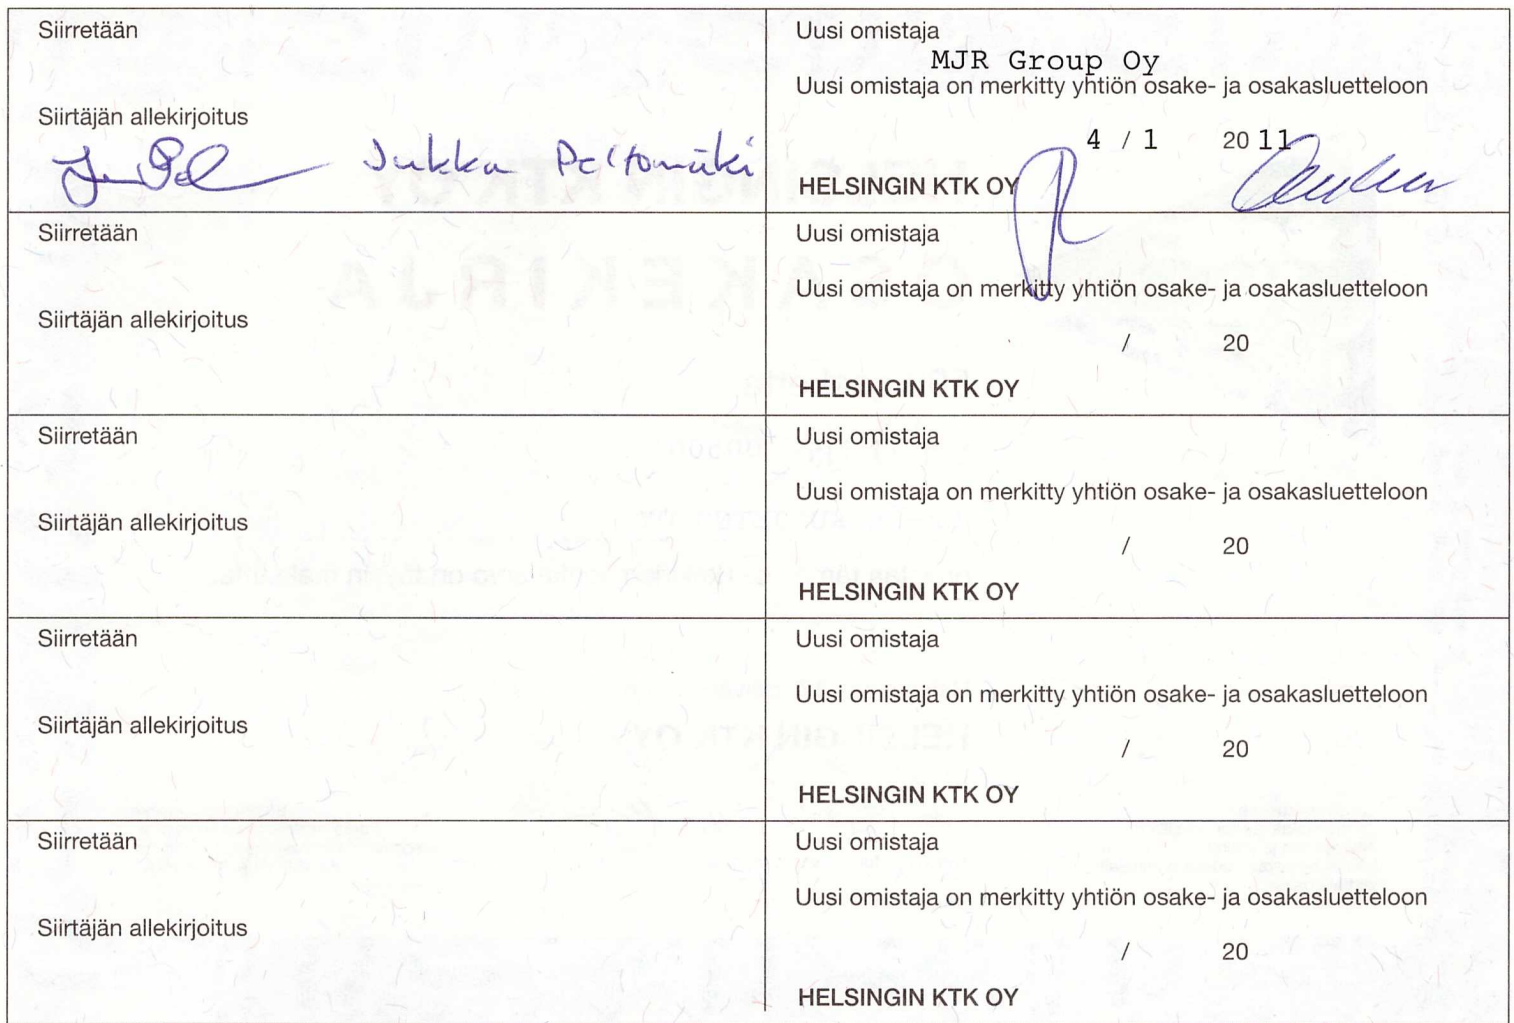 Siirretään
Siirtäjän allekirjoitus
Jukka Peltomäki
Uusi omistaja
MJR Group Oy
Uusi omistaja on merkitty yhtiön osake- ja osakasluetteloon
4 / 1 20 11
HELSINGIN KTK OY
Siirretään
Siirtäjän allekirjoitus
Uusi omistaja
Uusi omistaja on merkitty yhtiön osake- ja osakasluetteloon
/ 20
HELSINGIN KTK OY
Siirretään
Siirtäjän allekirjoitus
Uusi omistaja
Uusi omistaja on merkitty yhtiön osake- ja osakasluetteloon
/ 20
HELSINGIN KTK OY
Siirretään
Siirtäjän allekirjoitus
Uusi omistaja
Uusi omistaja on merkitty yhtiön osake- ja osakasluetteloon
/ 20
HELSINGIN KTK OY
Siirretään
Siirtäjän allekirjoitus
Uusi omistaja
Uusi omistaja on merkitty yhtiön osake- ja osakasluetteloon
/ 20
HELSINGIN KTK OY